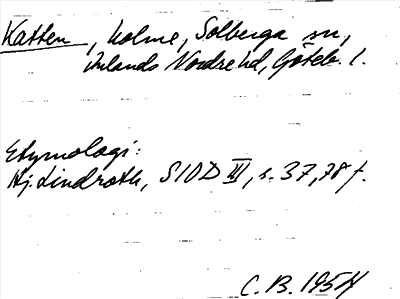 Katten, holme, Solberga sn,
Inlands Nordre hd, Göteb. l.
Etymologi:
Hj. Lindroth, SIOD III, s. 37, 78 f.
C.B. 1954